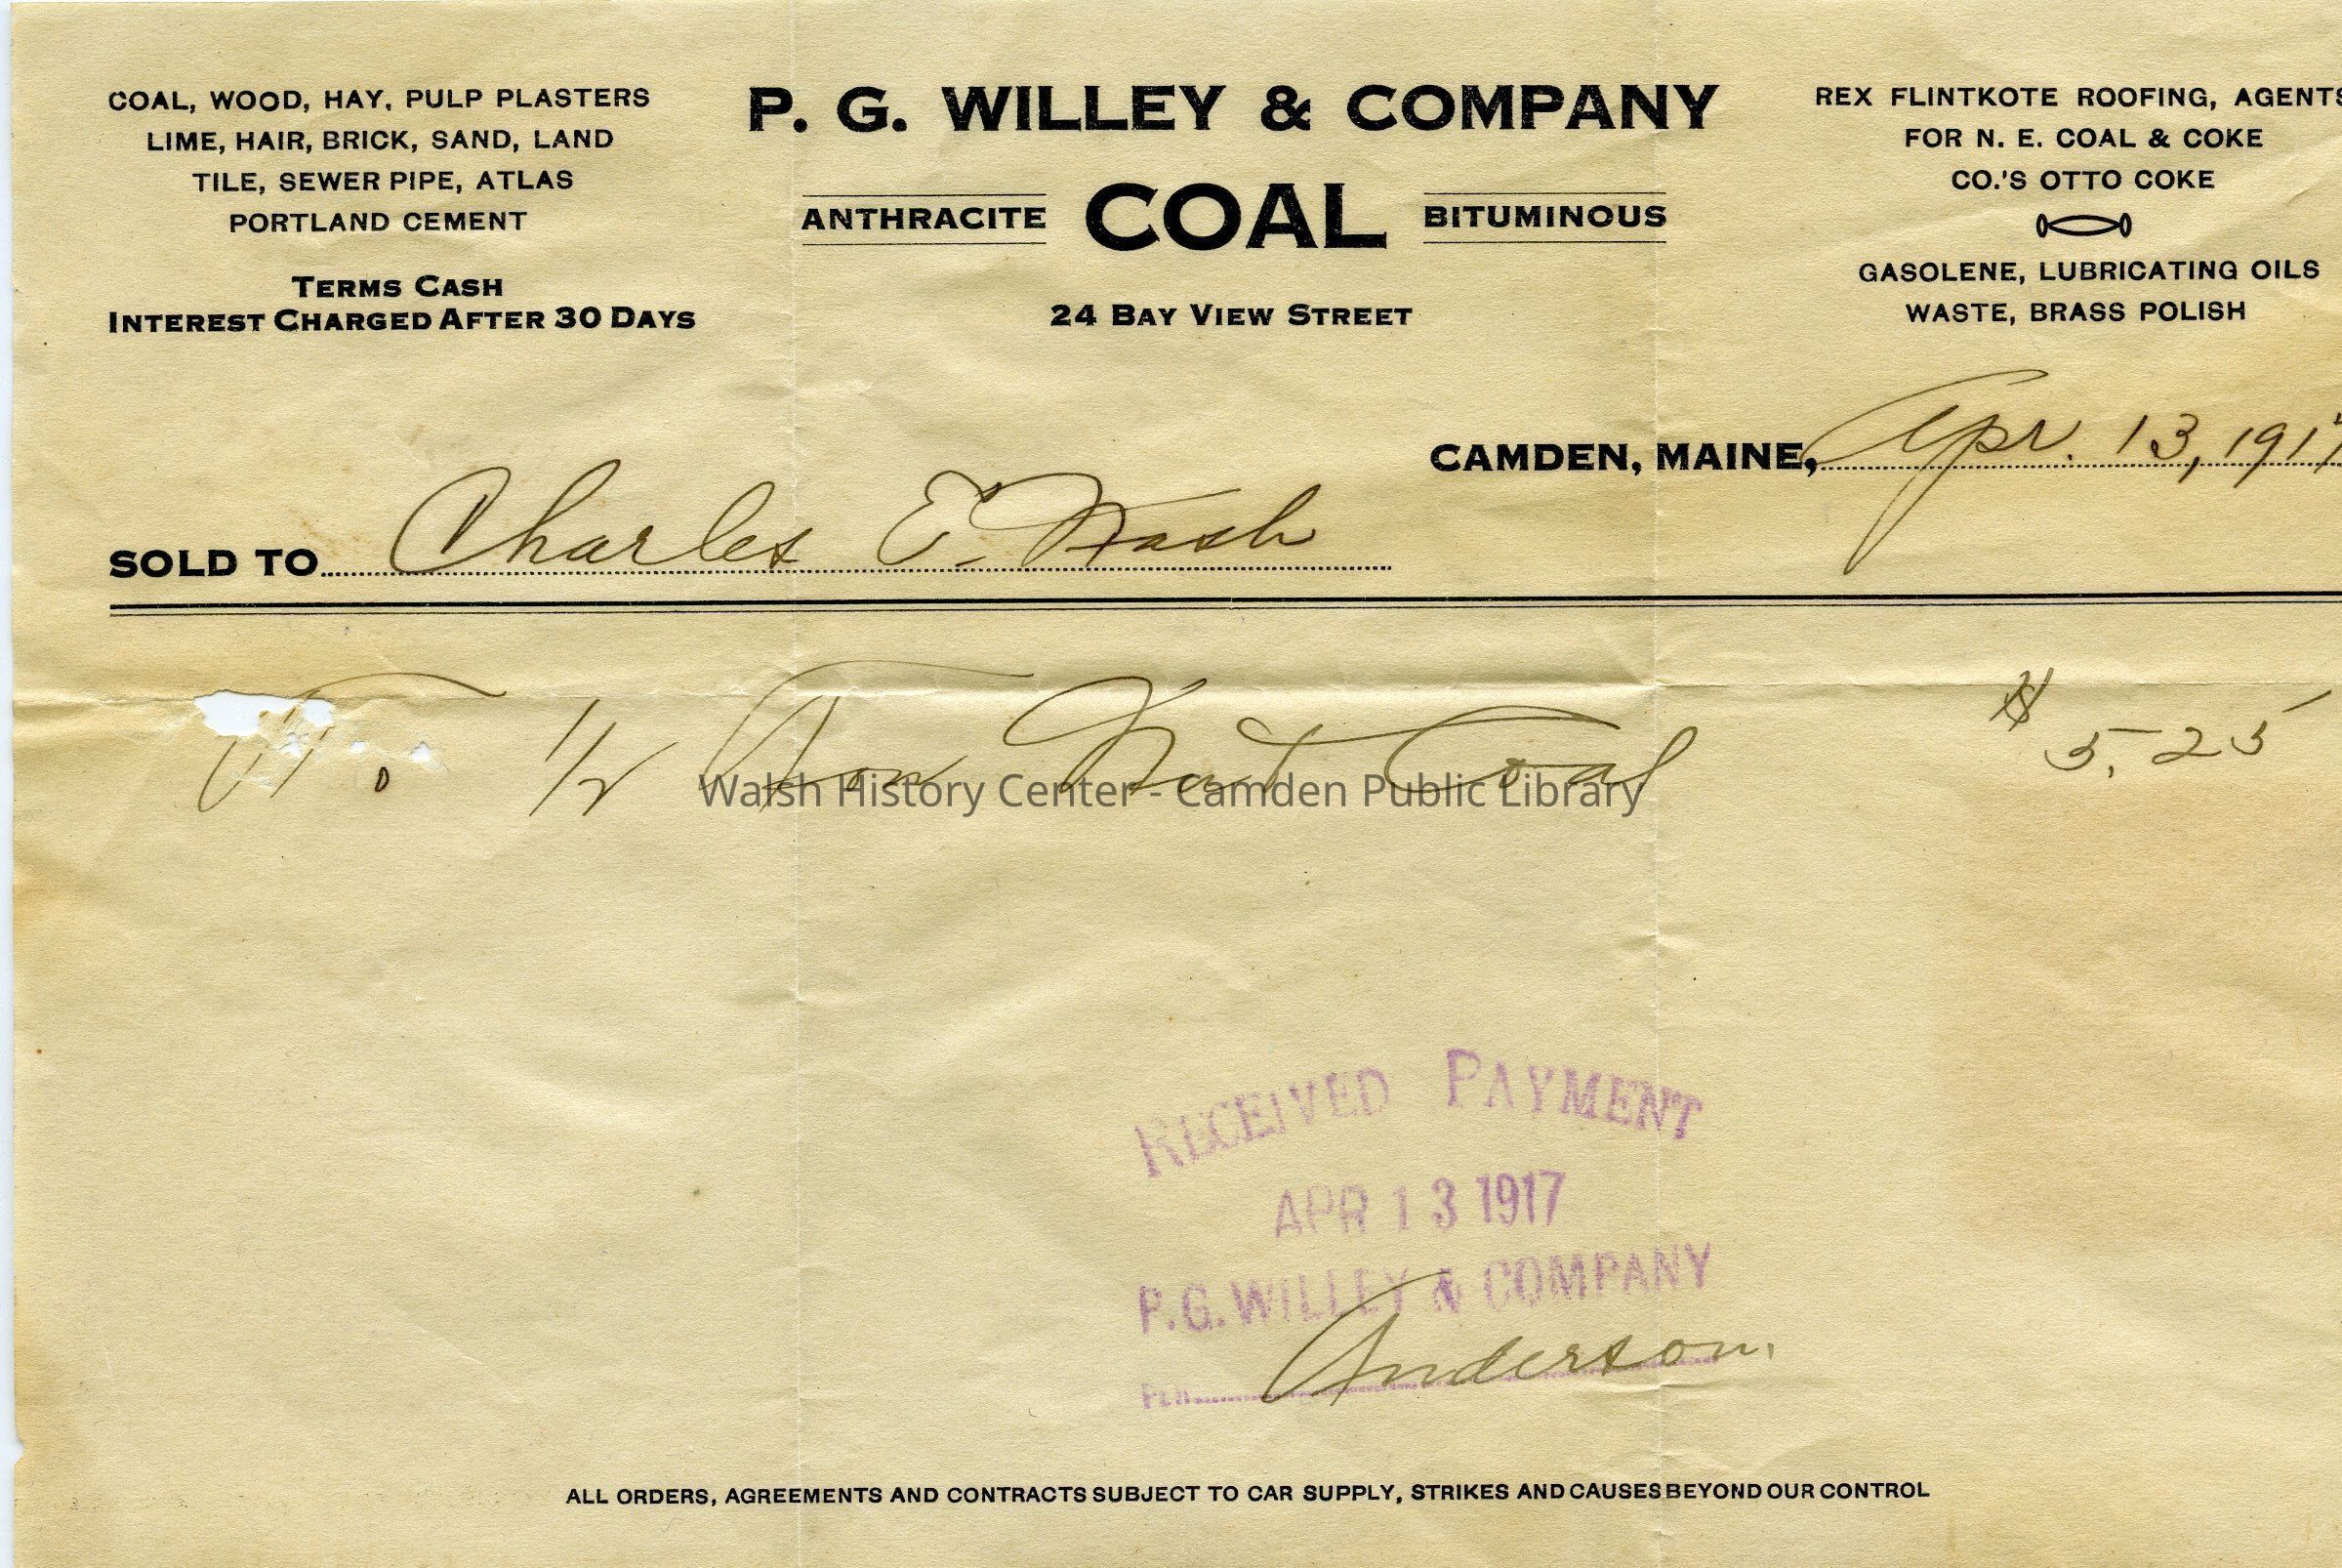 COAL, WOOD, HAY, PULP PLASTERS
LIME, HAIR, BRICK, SAND, LAND
TILE, SEWER PIPE, ATLAS
PORTLAND CEMENT
TERMS CASH
INTEREST CHARGED AFTER 30 DAYS
P. G. WILLEY & COMPANY
ANTHRACITE COAL BITUMINOUS
24 BAY VIEW STREET
REX FLINTKOTE ROOFING, AGENTS
FOR N. E. COAL & COKE
CO.'S OTTO COKE
GASOLENE, LUBRICATING OILS
WASTE, BRASS POLISH
CAMDEN, MAINE, Apr. 13, 1917
SOLD TO Charles E. Nash
1/2 Ton Nut Coal $5.25
Walsh History Center - Camden Public Library
RECEIVED PAYMENT
APR 13 1917
P.G. WILLEY & COMPANY
PER Anderson.
ALL ORDERS, AGREEMENTS AND CONTRACTS SUBJECT TO CAR SUPPLY, STRIKES AND CAUSES BEYOND OUR CONTROL